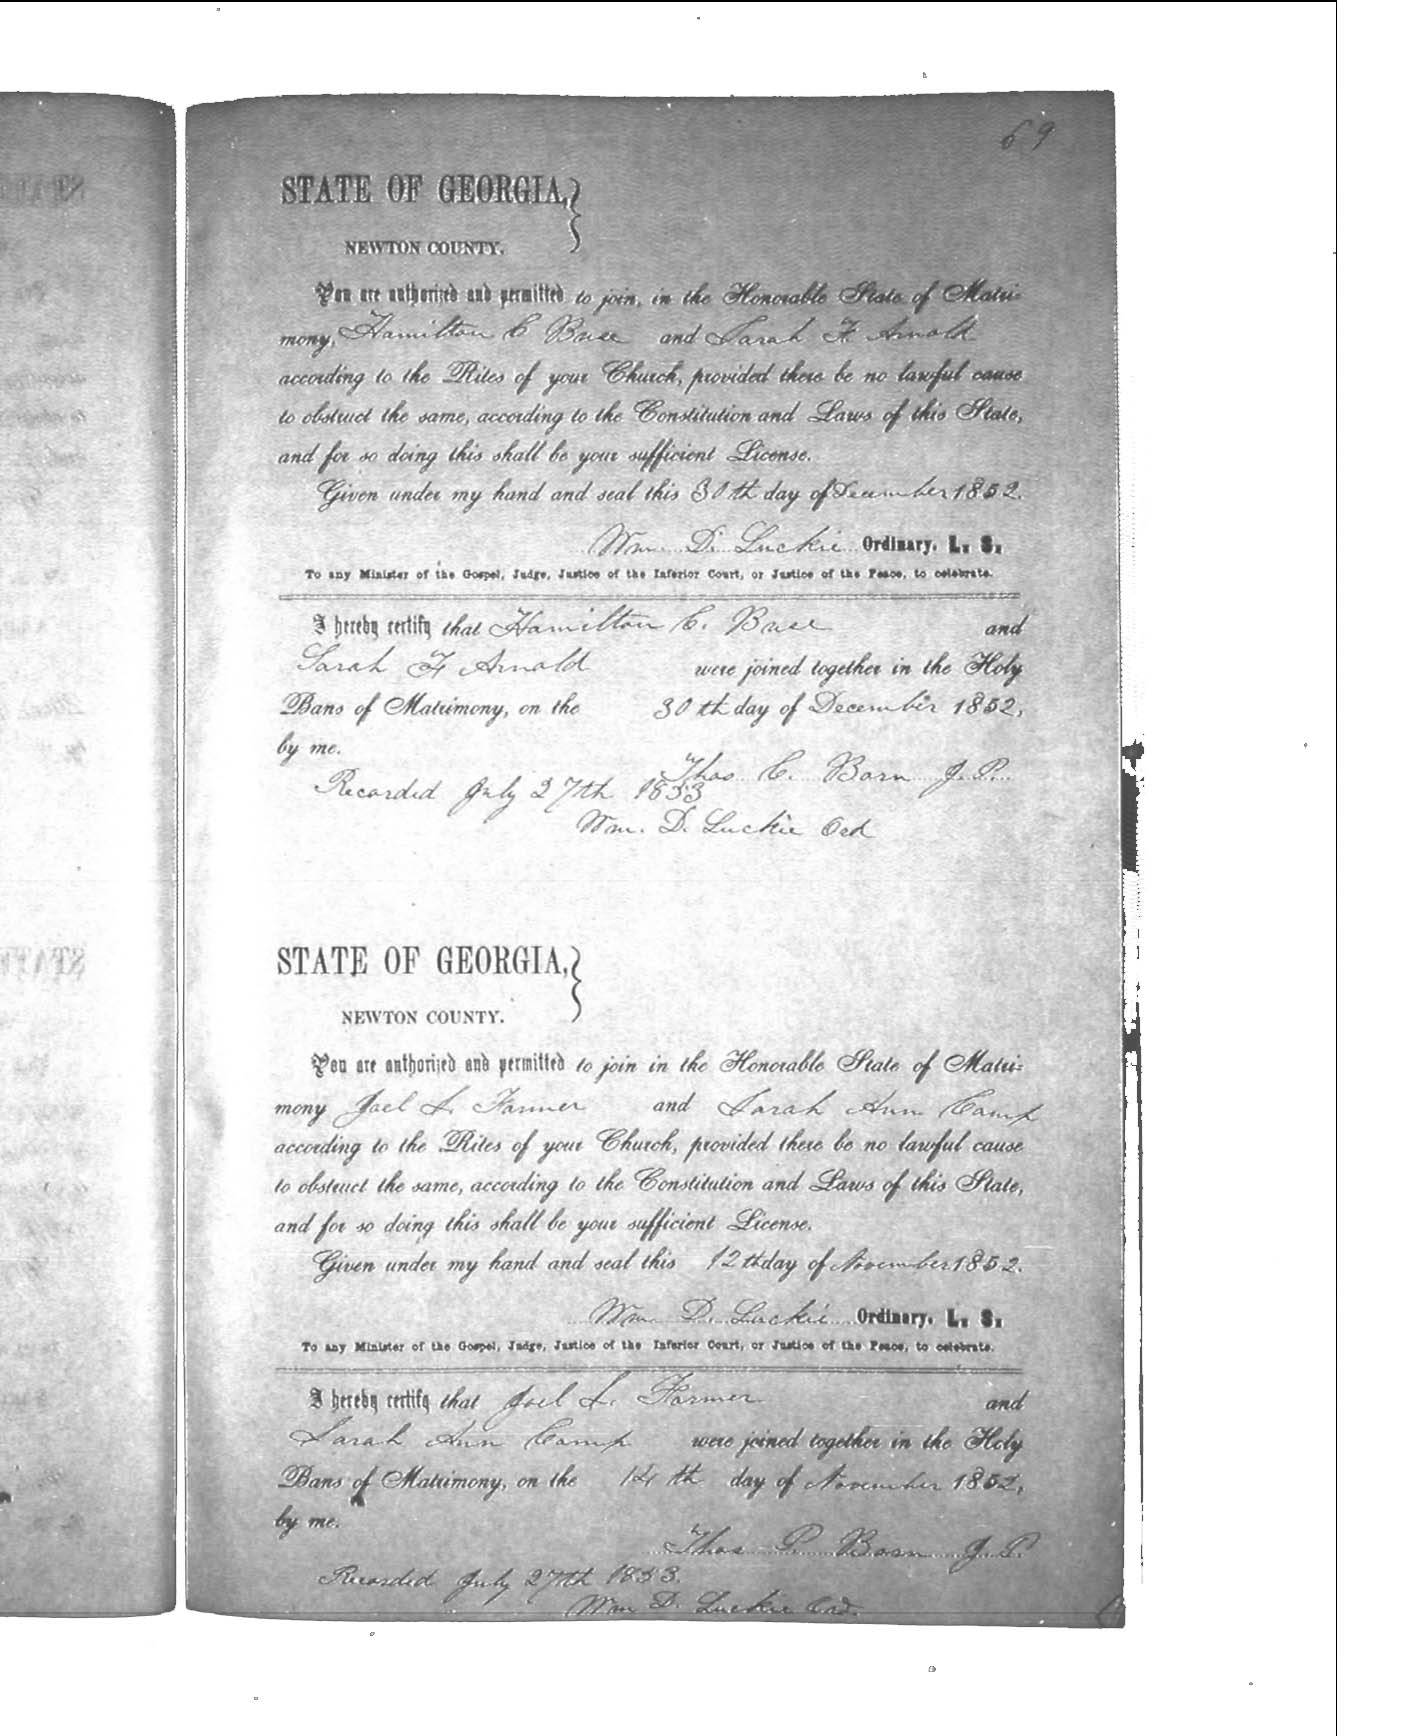 69
STATE OF GEORGIA,
NEWTON COUNTY.
You are authorized and permitted to join, in the Honorable State of Matri-
mony, Hamilton C Buse and Sarah F. Arnold
according to the Rites of your Church, provided there be no lawful cause
to obstruct the same, according to the Constitution and Laws of this State,
and for so doing this shall be your sufficient License.
Given under my hand and seal this 30th day of December 1852.
Wm. D. Luckie Ordinary. L. S.
To any Minister of the Gospel, Judge, Justice of the Inferior Court, or Justice of the Peace, to celebrate.
I hereby certify that Hamilton C. Buse and
Sarah F Arnold were joined together in the Holy
Bans of Matrimony, on the 30th day of December 1852,
by me.
Thos C. Born J. P.
Recorded July 27th 1853
Wm. D. Luckie Ord
STATE OF GEORGIA,
NEWTON COUNTY.
You are authorized and permitted to join in the Honorable State of Matri-
mony Joel L. Farmer and Sarah Ann Camp
according to the Rites of your Church, provided there be no lawful cause
to obstruct the same, according to the Constitution and Laws of this State,
and for so doing this shall be your sufficient License.
Given under my hand and seal this 12th day of November 1852.
Wm. D. Luckie Ordinary. L. S.
To any Minister of the Gospel, Judge, Justice of the Inferior Court, or Justice of the Peace, to celebrate.
I hereby certify that Joel L. Farmer and
Sarah Ann Camp were joined together in the Holy
Bans of Matrimony, on the 14th day of November 1852,
by me.
Thos P. Born J. P.
Recorded July 27th 1853.
Wm D. Luckie Ord.